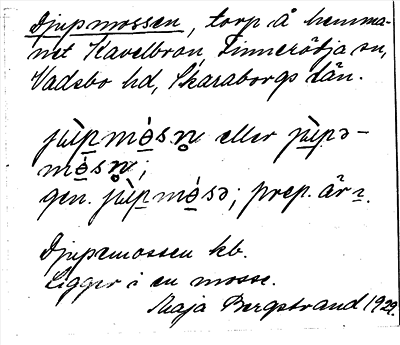 Djupmossen, torp å hemma-
net Kavelbron, Finnerödja sn,
Vadsbo hd, Skaraborgs län.
jùpmòsn̥ eller jùpə-
mòsn̥;
gen. jùpmòsə; prep. är
Djupemossen kb.
Ligger i en mosse.
Maja Bergstrand 1929.